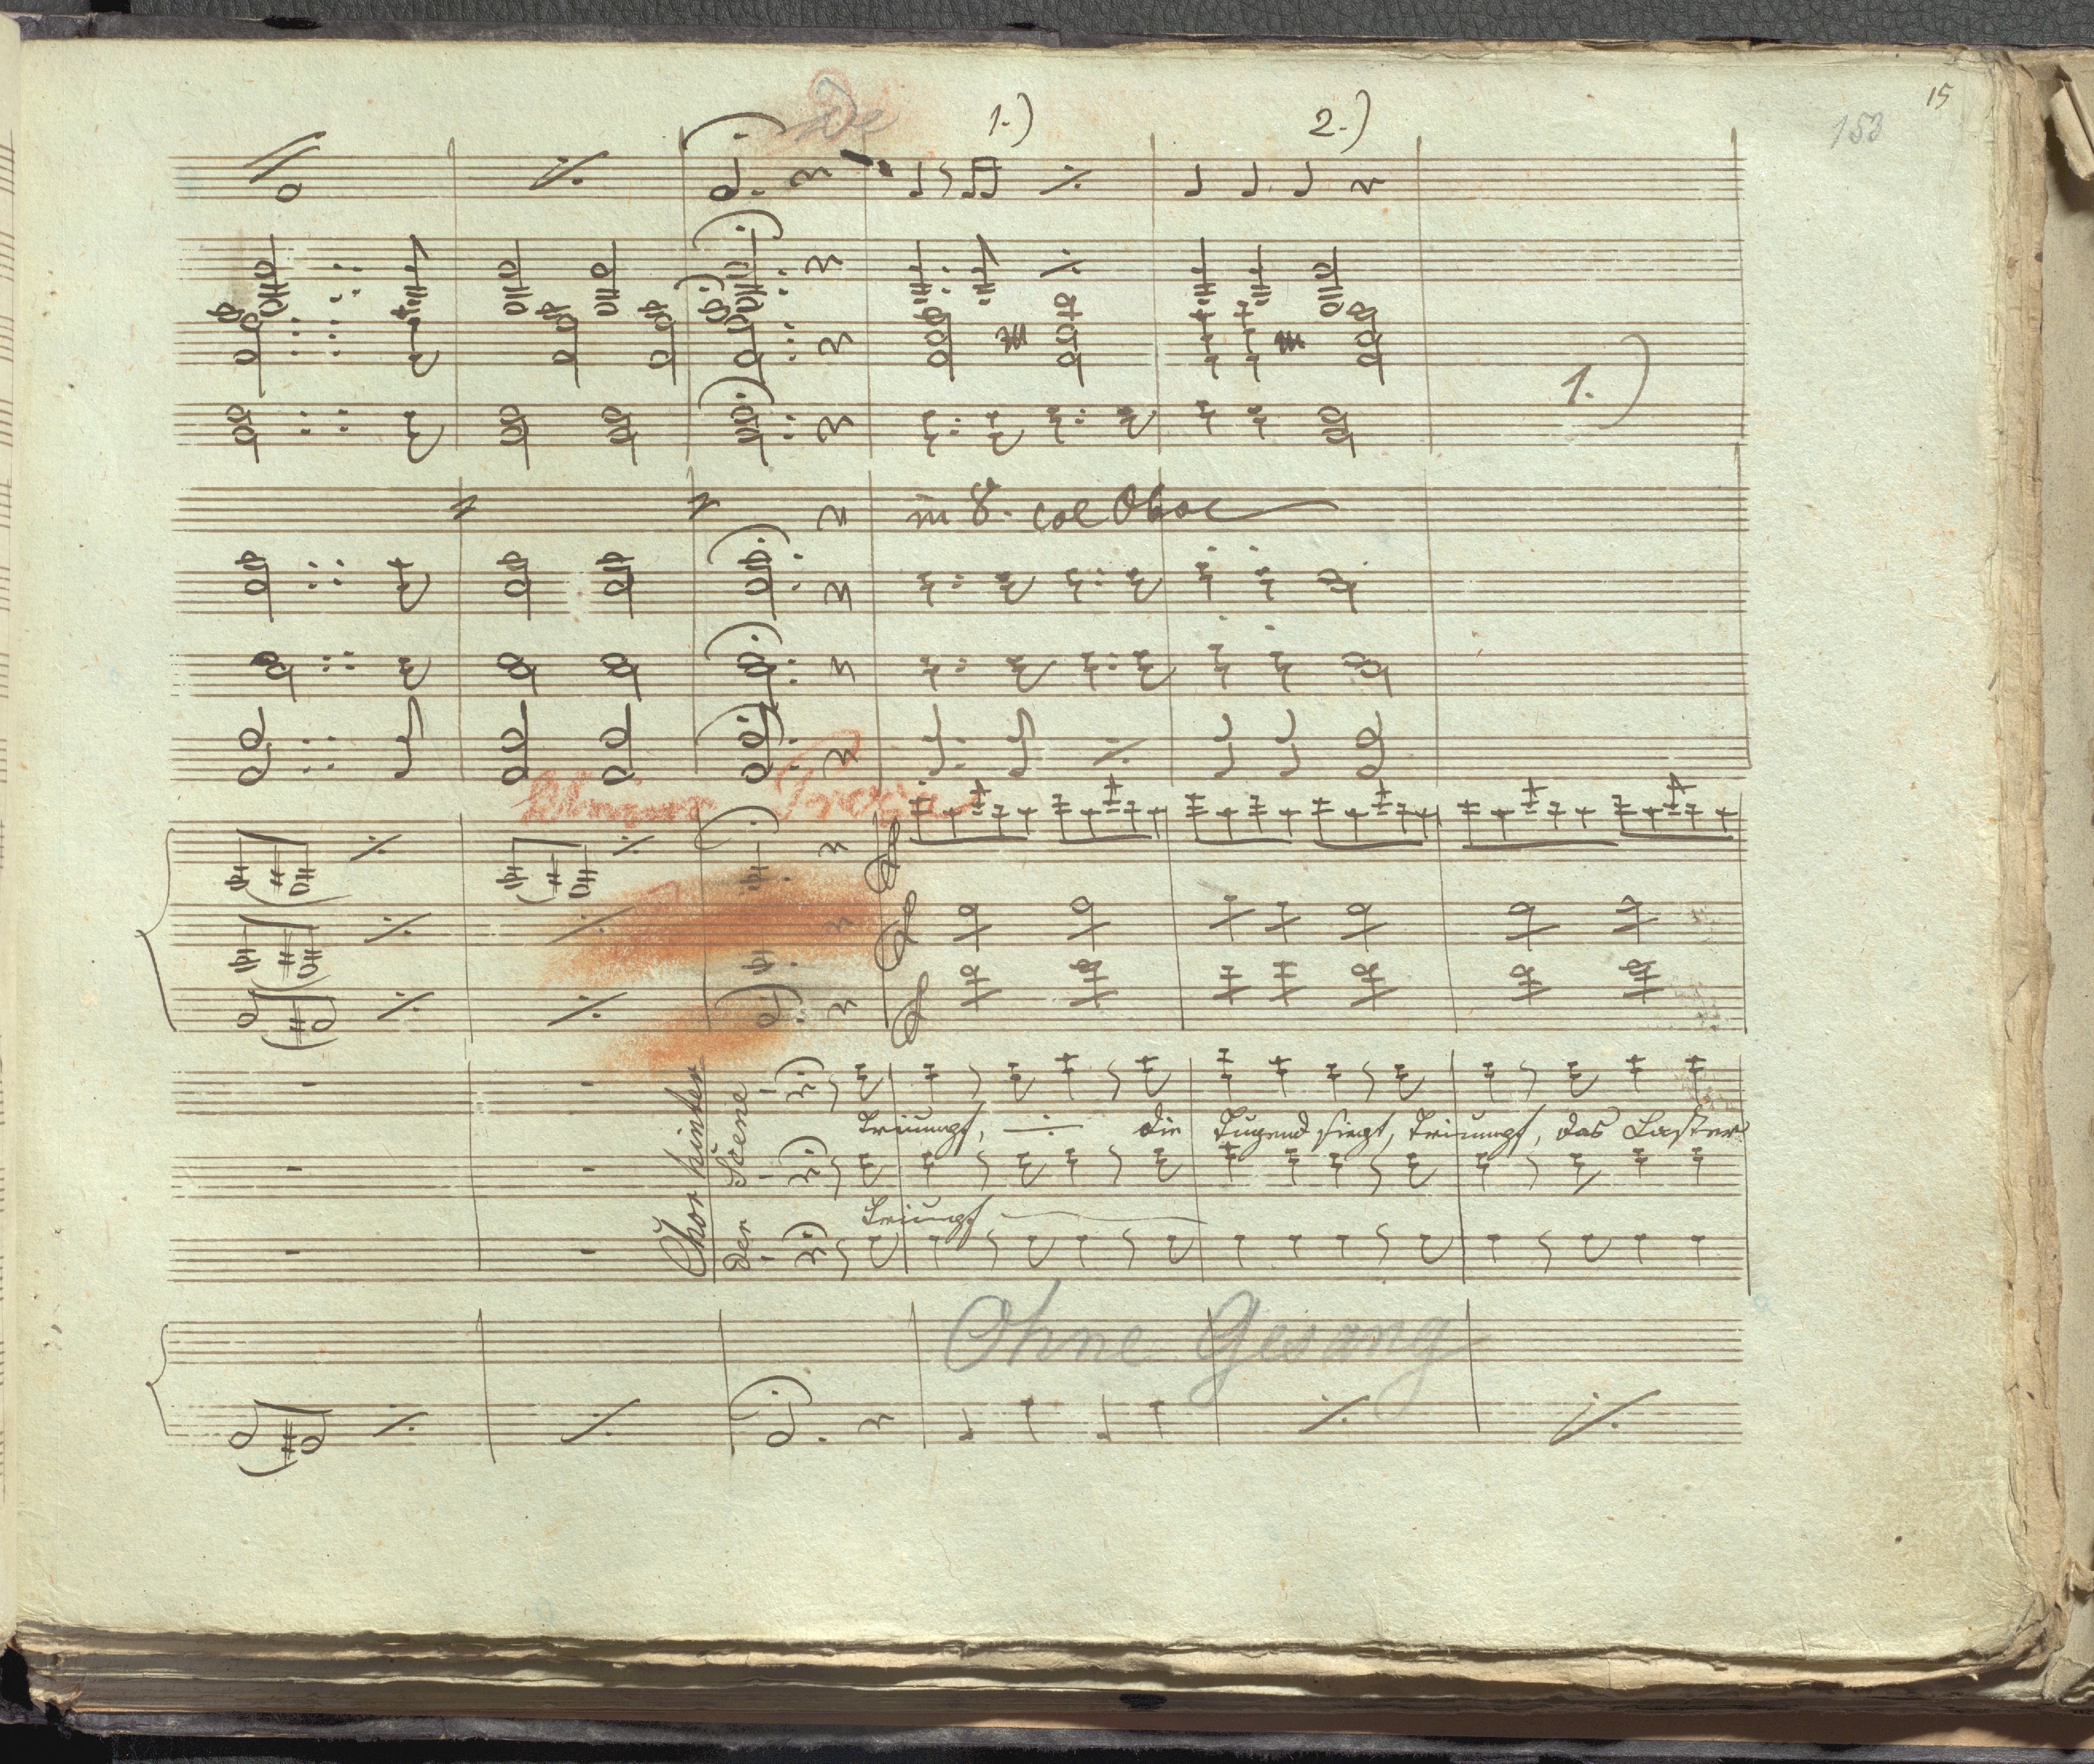 15
153
De 1.) 2.)
1.)
in 8. col Oboe
Chor hinter
der Scene
Triumpf, die Tugend siegt, Triumpf, das Laster
Triumpf
Ohne Gesang